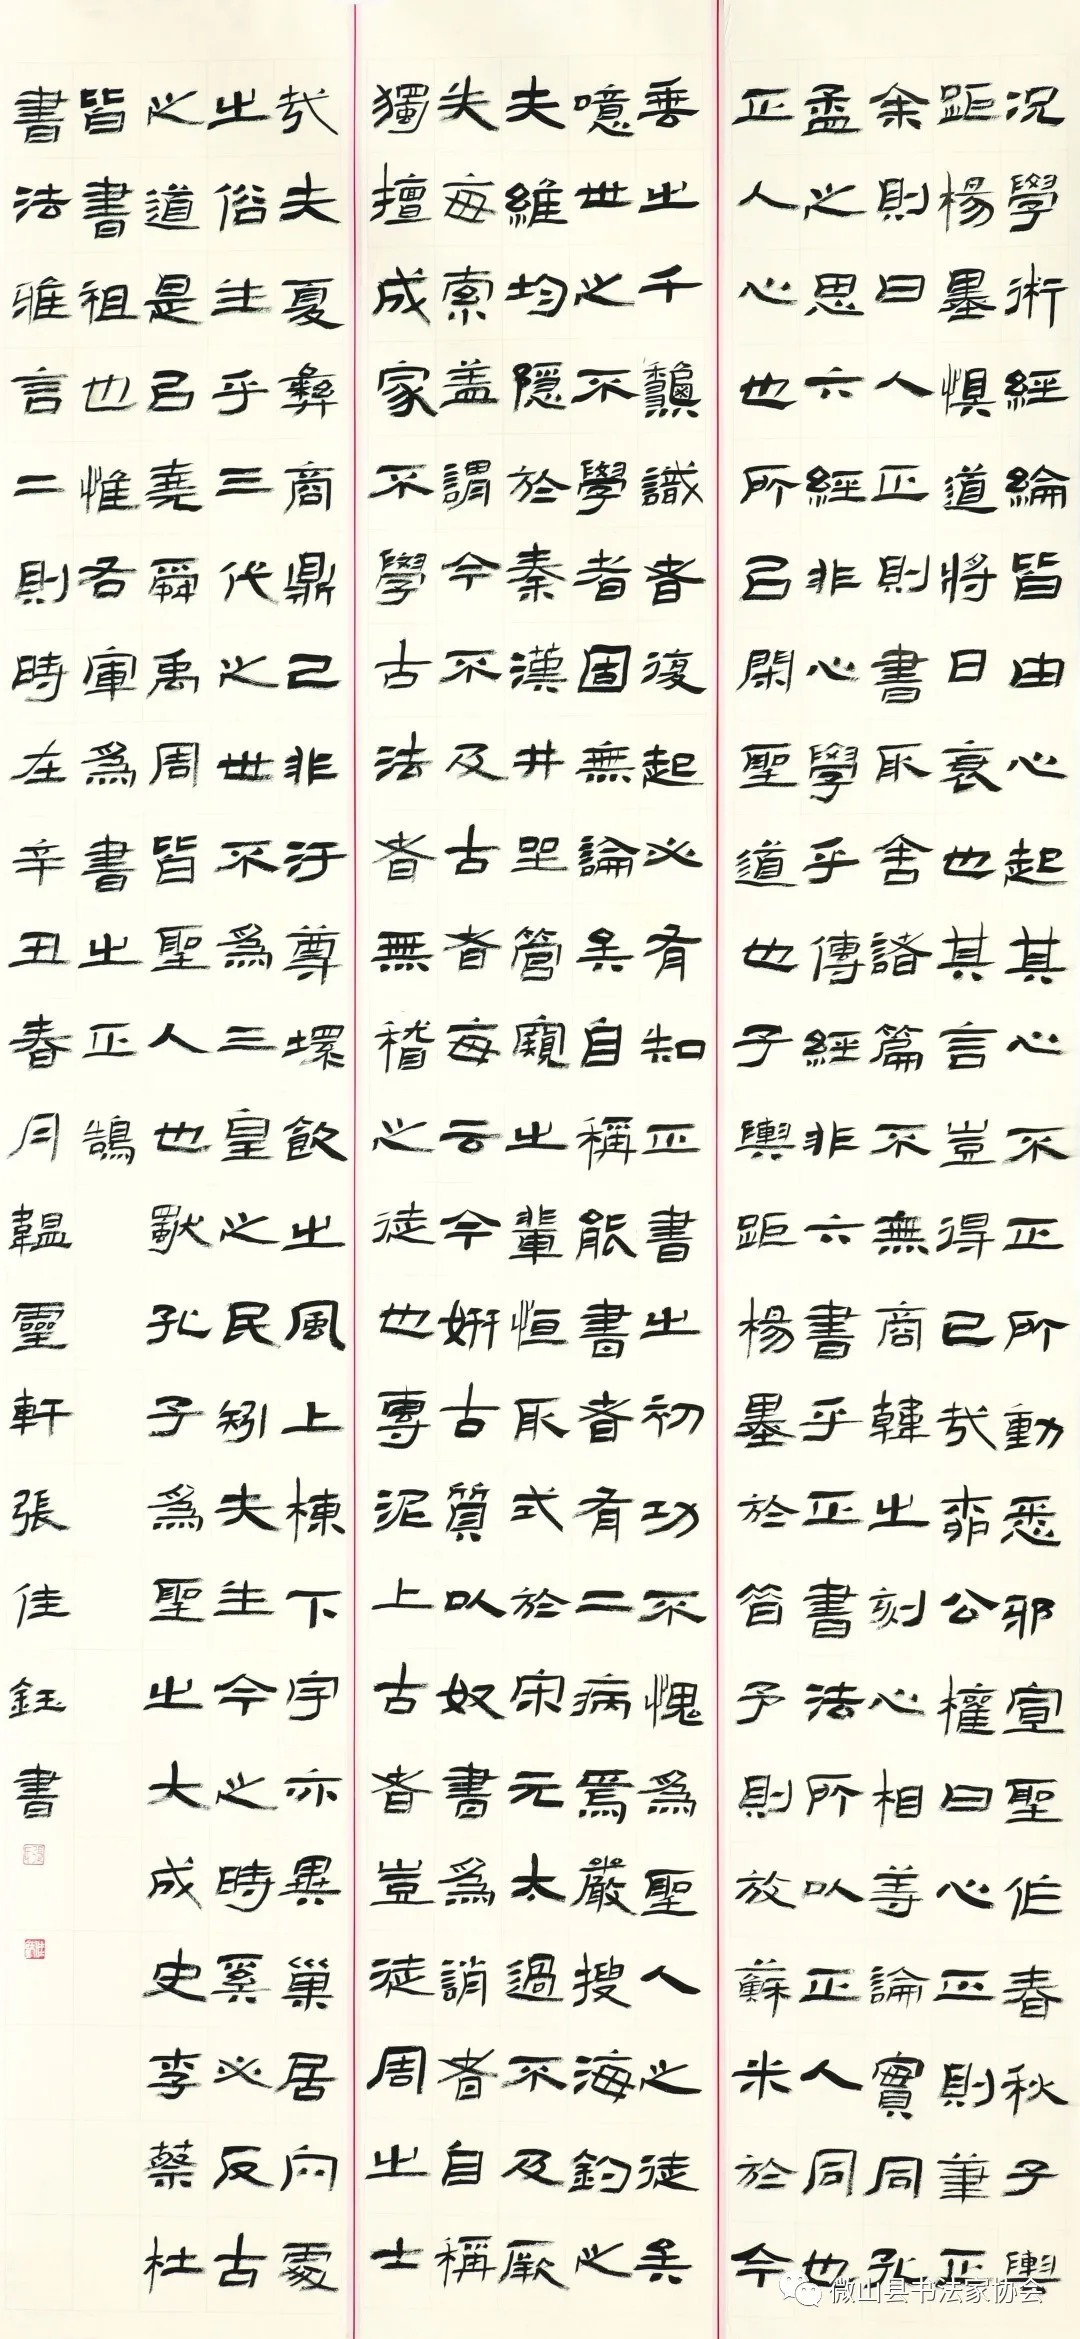 况學術經綸皆由心起其心不正所動悉邪宣聖作春秋子輿
距楊墨惧道將日衰也其言豈得已哉柰公權曰心正則筆正
余則曰人正則書取舍諸篇不無商韓之刻心相等論實同孔
孟之思六經非心學乎傳經非六書乎正書法所以正人同也
正人心也所以閑聖道也子輿距楊墨於昝予則放蘇米於今
垂之千龝識者復起必有知正書之初功不愧為聖人之徒矣
噫世之不學者固無論矣自稱能書者有二病焉嚴搜海釣之
夫維均隱於秦漢井坐管窺之輩恒取式於宋元太過不及厥
失每索盖謂今不及古者每云今姸古質以奴書為誚者自稱
獨擅成家不學古法者無稽之徒也專泥上古者豈徒周之士
哉夫夏彝商鼎已非汙尊壞飲之風上棟下宇亦異巢居内處
之俗生乎三代之世不為三皇之民矧夫生今之時奚必反古
之道是以堯舜禹周皆聖人也獻孔子為聖之大成史李蔡杜
皆書祖也惟右軍為書之正鵠
書法雅言二則時在辛丑春月韞靈軒張佳鈺書
微山县书法家协会